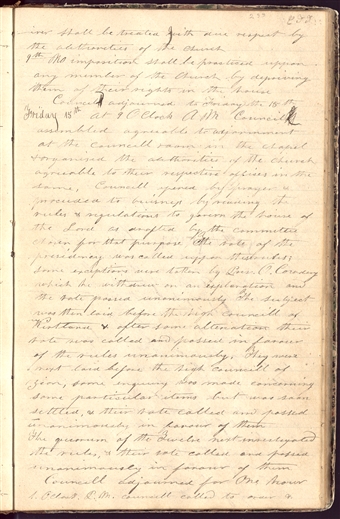 ever shall be treated with due respect by
the authorities of the Church
9th No imposition shall be practised uppon
any member of the church by depriving
them of their rights in the house
Council adjourned to Friday the 18th
Friday 18th at 9 O Clock A M Council
assembled agreeable to adjournment
at the council room in the chapel
& organised the authorities of the church
agreeable to their respective offices in the
same, Council opened by prayer &
proceeded to business by reading the
rules & regulations to govern the house of
the Lord as drafted by the committee
chosen for that purpose The vote of the
presidency was called uppon the subject
some exceptions were taken by
which he withdrew on an explanation and
the vote passed unanimously The subject
was then laid before the high council of
Kirtland & after some altercation their
vote was called and passed in favour
of the rules unanimously. They were
next laid before the high council of
Zion, some enquiry was made concerning
some particular items but was soon
settled, & their vote called and passed
unanimously in favour of them
The quorum of the Twelve next investigated
the rules, & their vote called and passed
unanimously in favour of them
Council adjourned for one hour
1. O Clock, P.M. council called to order &